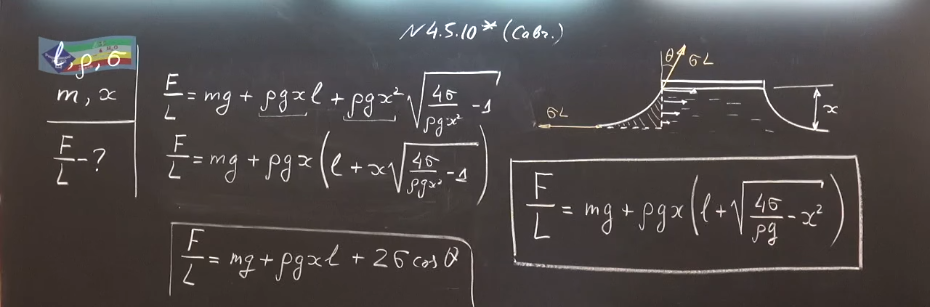 N4.5.10* (Савч.)
l, ρ, σ
m, x
F/L - ?
F/L = mg + ρgxl + ρgx²√(4σ/ρgx² - 1)
F/L = mg + ρgx(l + x√(4σ/ρgx² - 1))
F/L = mg + ρgxl + 2σ cosθ
θ σL
σL
x
F/L = mg + ρgx(l + √(4σ/ρg - x²))